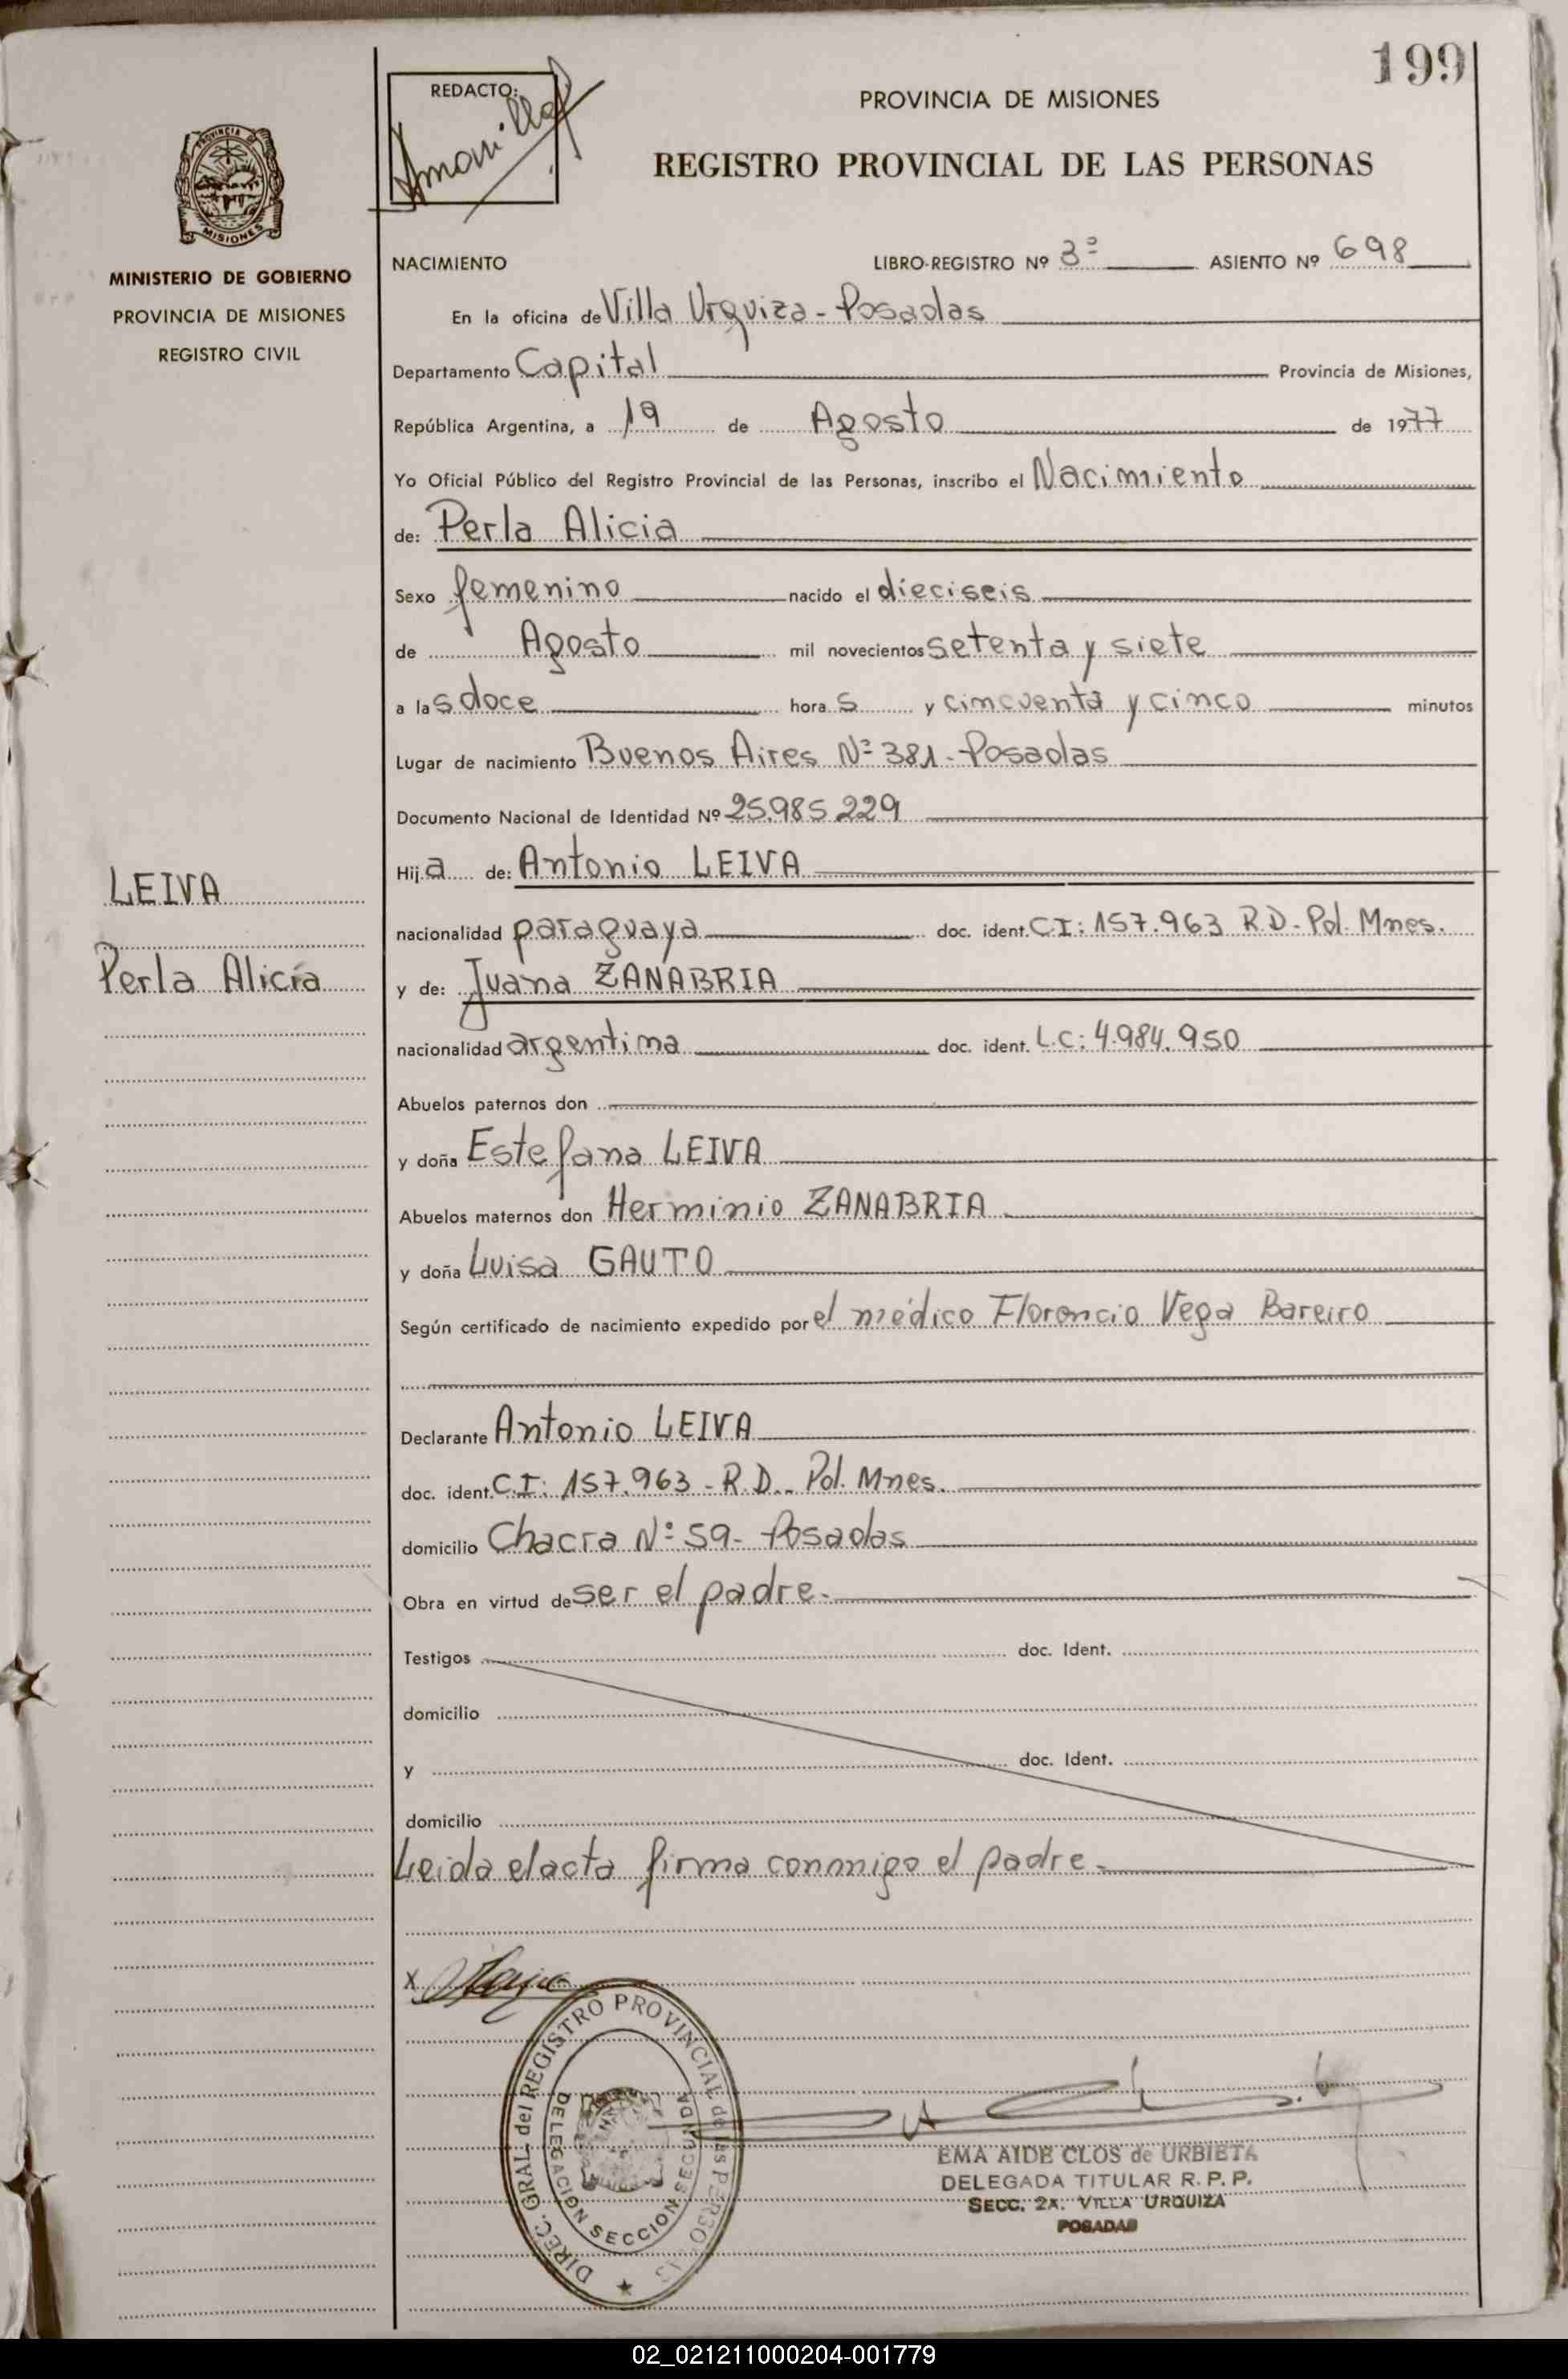 199
REDACTO:
PROVINCIA DE MISIONES
REGISTRO PROVINCIAL DE LAS PERSONAS
PROVINCIA DE
MISIONES
MINISTERIO DE GOBIERNO
PROVINCIA DE MISIONES
REGISTRO CIVIL
NACIMIENTO LIBRO-REGISTRO Nº 3º ASIENTO Nº 698
En la oficina de Villa Urquiza - Posadas
Departamento Capital Provincia de Misiones,
República Argentina, a 19 de Agosto de 1977
Yo Oficial Público del Registro Provincial de las Personas, inscribo el Nacimiento
de: Perla Alicia
Sexo femenino nacido el dieciseis
de Agosto mil novecientos setenta y siete
a las doce horas y cincuenta y cinco minutos
Lugar de nacimiento Buenos Aires Nº 381 - Posadas
Documento Nacional de Identidad Nº 25.985.229
Hija de: Antonio LEIVA
LEIVA
nacionalidad paraguaya doc. ident. C.I: 157.963 R.D - Pol. Mnes.
Perla Alicia
y de: Juana ZANABRIA
nacionalidad argentina doc. ident. L.C: 4.984.950
Abuelos paternos don
y doña Estefana LEIVA
Abuelos maternos don Herminio ZANABRIA
y doña Luisa GAUTO
Según certificado de nacimiento expedido por el médico Florencio Vega Bareiro
Declarante Antonio LEIVA
doc. ident. C.I: 157.963 - R.D.. Pol. Mnes.
domicilio Chacra Nº 59 - Posadas
Obra en virtud de ser el padre.
Testigos doc. Ident.
domicilio
y doc. Ident.
domicilio
Leida el acta firma conmigo el padre.
X
DIREC. GRAL. del REGISTRO PROVINCIAL de las PERSO
DELEGACION SECCION SEGUNDA
EMA AIDE CLOS de URBIETA
DELEGADA TITULAR R. P. P.
SECC. 2A. VILLA URQUIZA
POSADAS
02_021211000204-001779